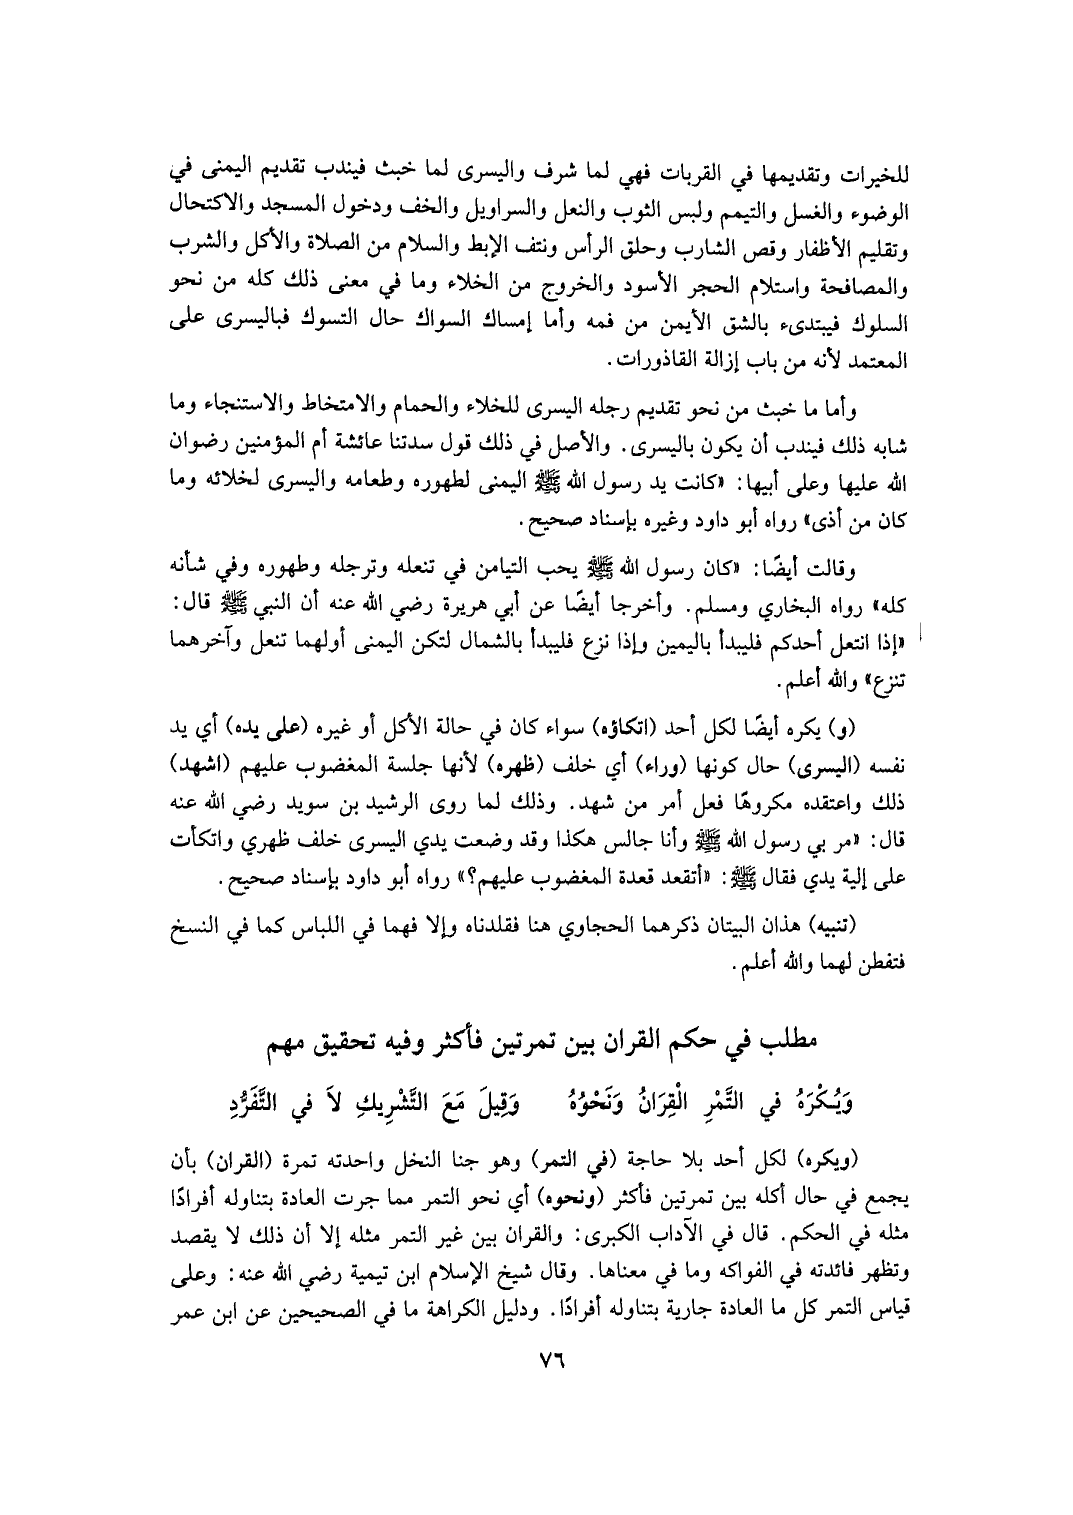 للخيرات وتقديمها في القربات فهي لما شرف واليسرى لما خبث فيندب تقديم اليمنى في
الوضوء والغسل والتيمم ولبس الثوب والنعل والسراويل والخف ودخول المسجد والاكتحال
وتقليم الأظفار وقص الشارب وحلق الرأس ونتف الإبط والسلام من الصلاة والأكل والشرب
والمصافحة واستلام الحجر الأسود والخروج من الخلاء وما في معنى ذلك كله من نحو
السلوك فيبتدىء بالشق الأيمن من فمه وأما إمساك السواك حال التسوك فباليسرى على
المعتمد لأنه من باب إزالة القاذورات.
وأما ما خبث من نحو تقديم رجله اليسرى للخلاء والحمام والامتخاط والاستنجاء وما
شابه ذلك فيندب أن يكون باليسرى. والأصل في ذلك قول سدتنا عائشة أم المؤمنين رضوان
الله عليها وعلى أبيها: «كانت يد رسول الله ﷺ اليمنى لطهوره وطعامه واليسرى لخلائه وما
كان من أذى» رواه أبو داود وغيره بإسناد صحيح.
وقالت أيضًا: «كان رسول الله ﷺ يحب التيامن في تنعله وترجله وطهوره وفي شأنه
كله» رواه البخاري ومسلم. وأخرجا أيضًا عن أبي هريرة رضي الله عنه أن النبي ﷺ قال:
«إذا انتعل أحدكم فليبدأ باليمين وإذا نزع فليبدأ بالشمال لتكن اليمنى أولهما تنعل وآخرهما
تنزع» والله أعلم.
(و) يكره أيضًا لكل أحد (اتكاؤه) سواء كان في حالة الأكل أو غيره (على يده) أي يد
نفسه (اليسرى) حال كونها (وراء) أي خلف (ظهره) لأنها جلسة المغضوب عليهم (اشهد)
ذلك واعتقده مكروهًا فعل أمر من شهد. وذلك لما روى الرشيد بن سويد رضي الله عنه
قال: «مر بي رسول الله ﷺ وأنا جالس هكذا وقد وضعت يدي اليسرى خلف ظهري واتكأت
على إلية يدي فقال ﷺ: «أتقعد قعدة المغضوب عليهم؟» رواه أبو داود بإسناد صحيح.
(تنبيه) هذان البيتان ذكرهما الحجاوي هنا فقلدناه وإلا فهما في اللباس كما في النسخ
فتفطن لهما والله أعلم.
مطلب في حكم القران بين تمرتين فأكثر وفيه تحقيق مهم
وَيُكْرَهُ في التَّمْرِ الْقِرَانُ وَنَحْوُهُ وَقِيلَ مَعَ التَّشْرِيكِ لاَ في التَّفَرُّدِ
(ويكره) لكل أحد بلا حاجة (في التمر) وهو جنا النخل واحدته تمرة (القران) بأن
يجمع في حال أكله بين تمرتين فأكثر (ونحوه) أي نحو التمر مما جرت العادة بتناوله أفرادًا
مثله في الحكم. قال في الآداب الكبرى: والقران بين غير التمر مثله إلا أن ذلك لا يقصد
وتظهر فائدته في الفواكه وما في معناها. وقال شيخ الإسلام ابن تيمية رضي الله عنه: وعلى
قياس التمر كل ما العادة جارية بتناوله أفرادًا. ودليل الكراهة ما في الصحيحين عن ابن عمر
٧٦